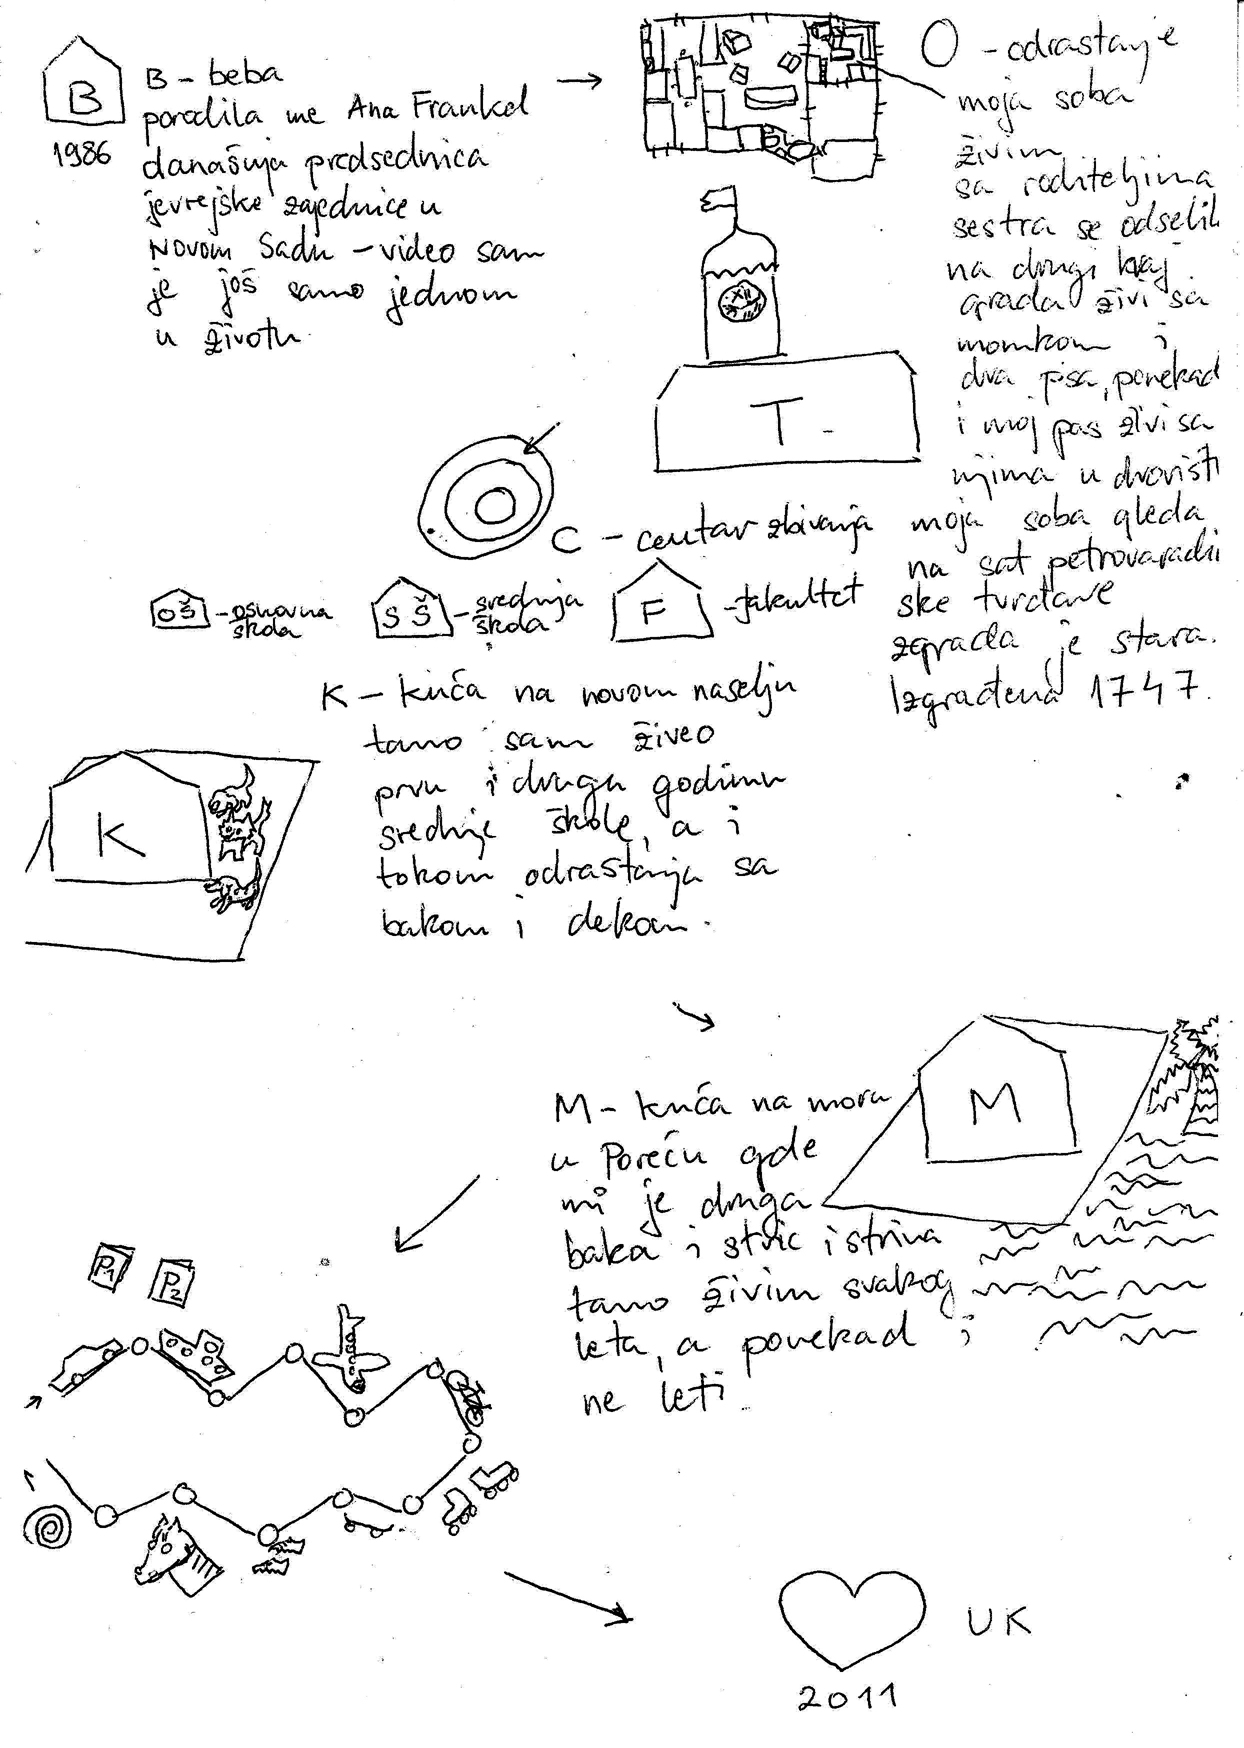 B
1986
B - beba
porodila me Ana Frankel
današnja predsednica
jevrejske zajednice u
Novom Sadu - video sam
je još samo jednom
u životu.
O - odrastanje
moja soba
živim
sa roditeljima
sestra se odselil
na drugi kraj
grada živi sa
momkom i
dva psa, ponekad
i moj pas živi sa
njima u dvorišti
moja soba gleda
na sat petrovaradin
ske tvrđave
zgrada je stara.
Izgrađena 1747.
XII
T -
C - centar zbivanja
OŠ - osnovna
škola
SŠ - srednja
škola
F - fakultet
K - kuća na novom naselju
tamo sam živeo
prvu i drugu godinu
srednje škole, a i
tokom odrastanja sa
bakom i dekom.
K
M - kuća na moru
u Poreču gde
mi je druga
baka i stric i strina
tamo živim svakog
leta, a ponekad i
ne leti.
M
P1
P2
UK
2011